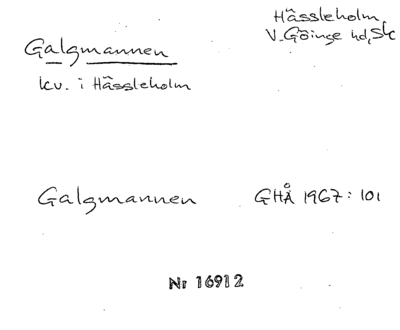 Hässleholm,
V. Göinge hd, Sk
Galgmannen
kv. i Hässleholm
Galgmannen GHÅ 1967: 101
Nr 16912